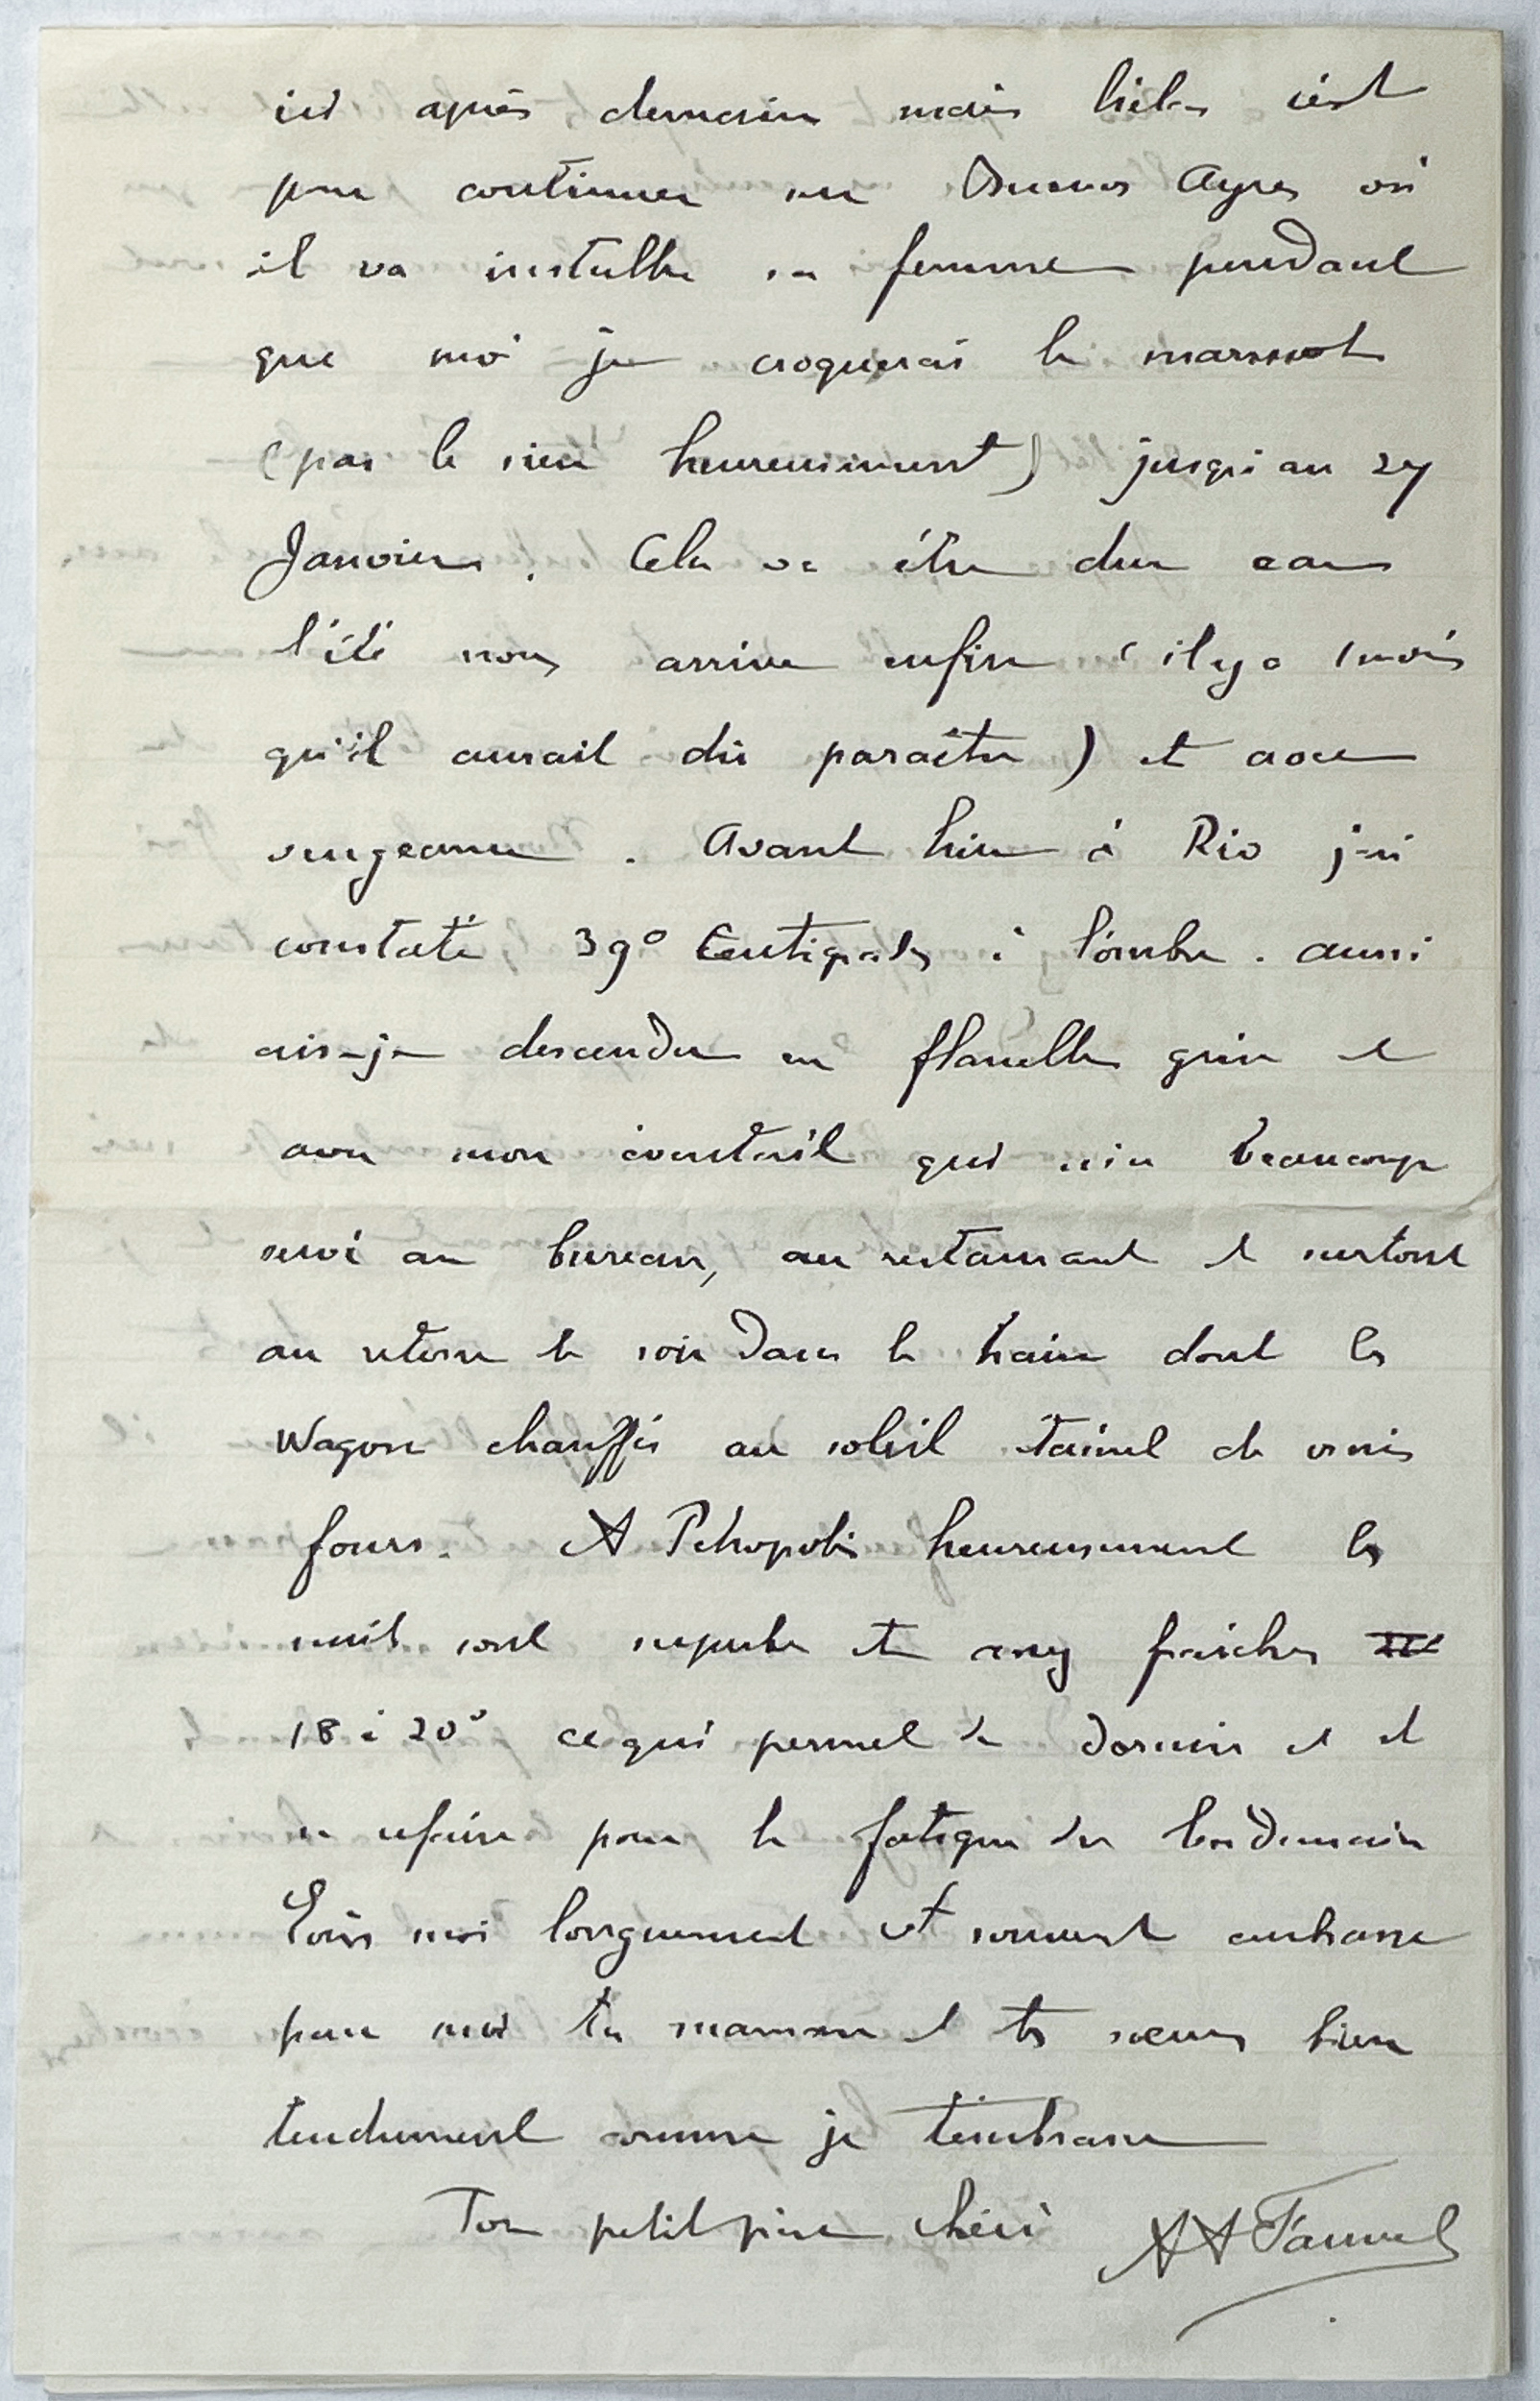 ici après demain mais hélas c'est
pour continuer sur Buenos Ayres où
il va installer sa femme pendant
que moi je croquerai le marmot
(pas le sien heureusement) jusqu'au 27
Janvier. Cela va être dur car
l'été nous arrive enfin (il y a 1 mois
qu'il aurait dû paraître) et avec
vengeance. Avant hier à Rio j'ai
constaté 39° Centigrades à l'ombre. aussi
ais-je descendu en flanelle grise et
avec mon éventail qui m'a beaucoup
servi au bureau, au restaurant et surtout
au retour le soir dans le train dont les
wagons chauffés au soleil étaient de vrais
fours. A Petropolis heureusement les
nuits sont superbes et assez fraiches
18 à 20° ce qui permet de dormir et et
se refaire pour la fatigue du lendemain
Ecris moi longuement et souvent embrasse
pour moi ta maman et tes soeurs bien
tendrement comme je t'embrasse
Ton petit père chéri AA Fauvel